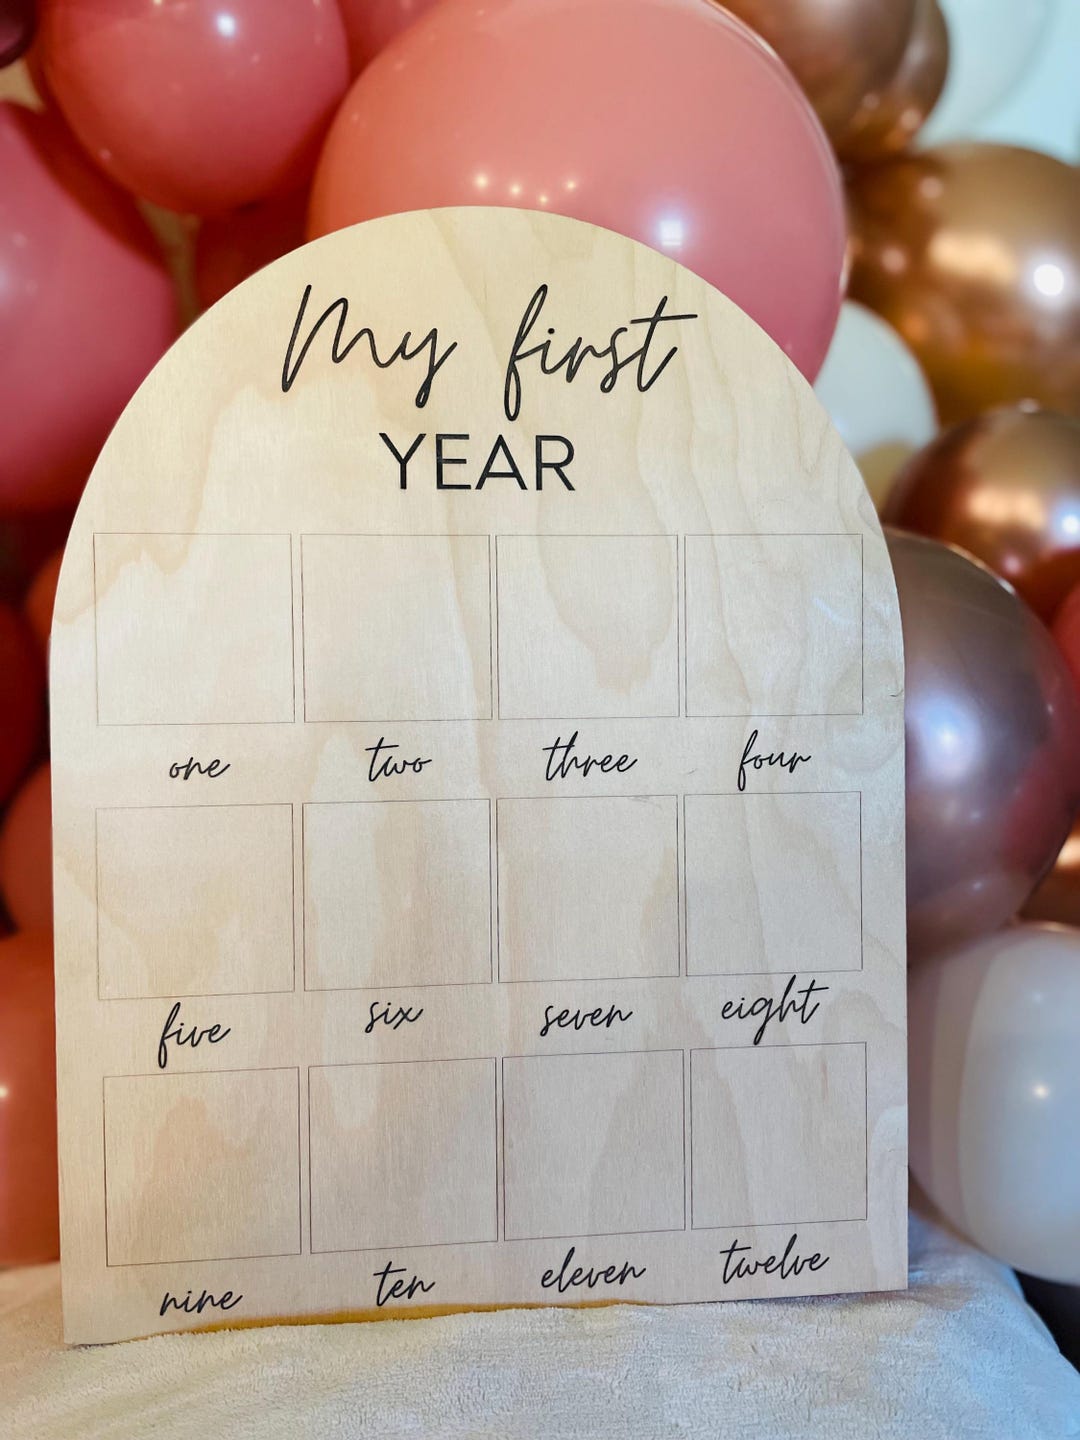 My first
YEAR
one two three four
five six seven eight
nine ten eleven twelve